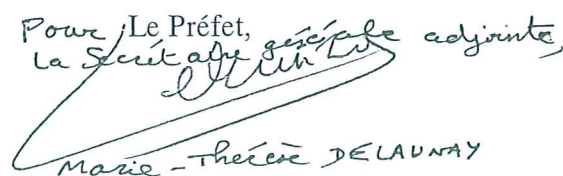 Pour Le Préfet,
La Secrétaire générale adjointe,
Marie-Thérèse DELAUNAY